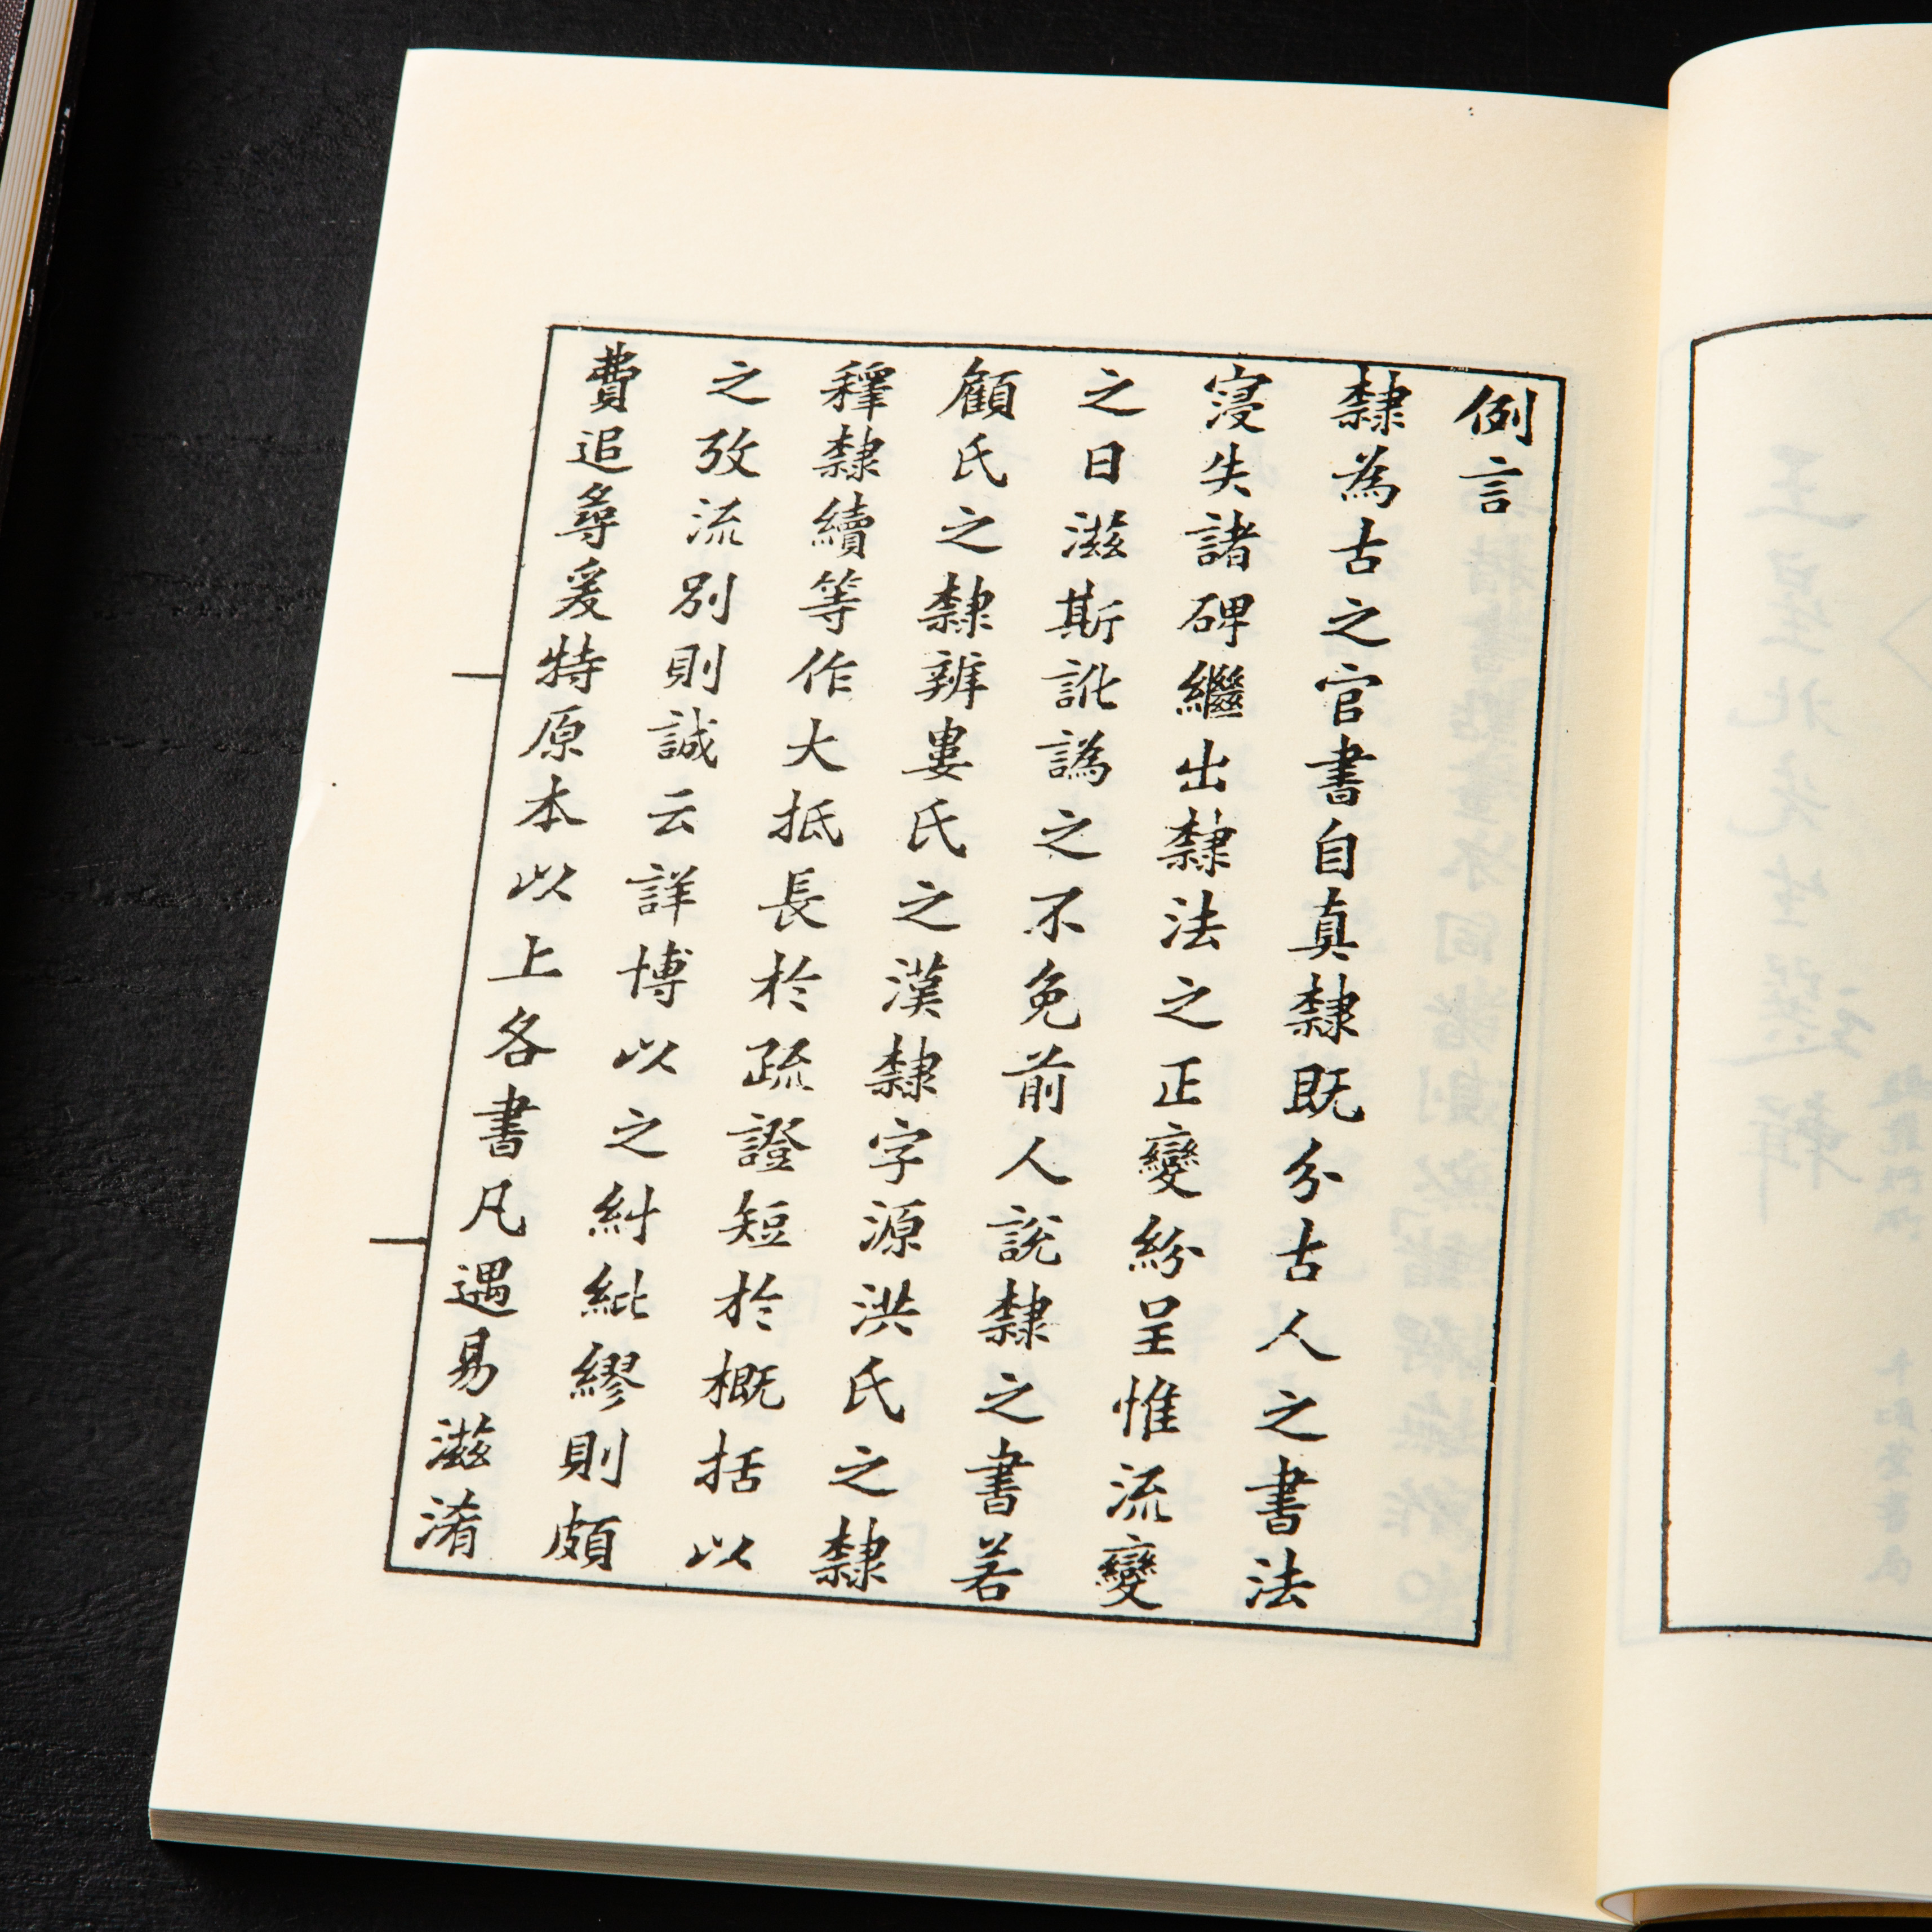 例言
隸為古之官書自真隸既分古人之書法
寖失諸碑繼出隸法之正變紛呈惟流變
之日滋斯訛譌之不免前人說隸之書若
顧氏之隸辨婁氏之漢隸字源洪氏之隸
釋隸續等作大抵長於疏證短於概括以
之攷流別則誠云詳博以之糾紕繆則頗
費追尋爰特原本以上各書凡遇易滋淆